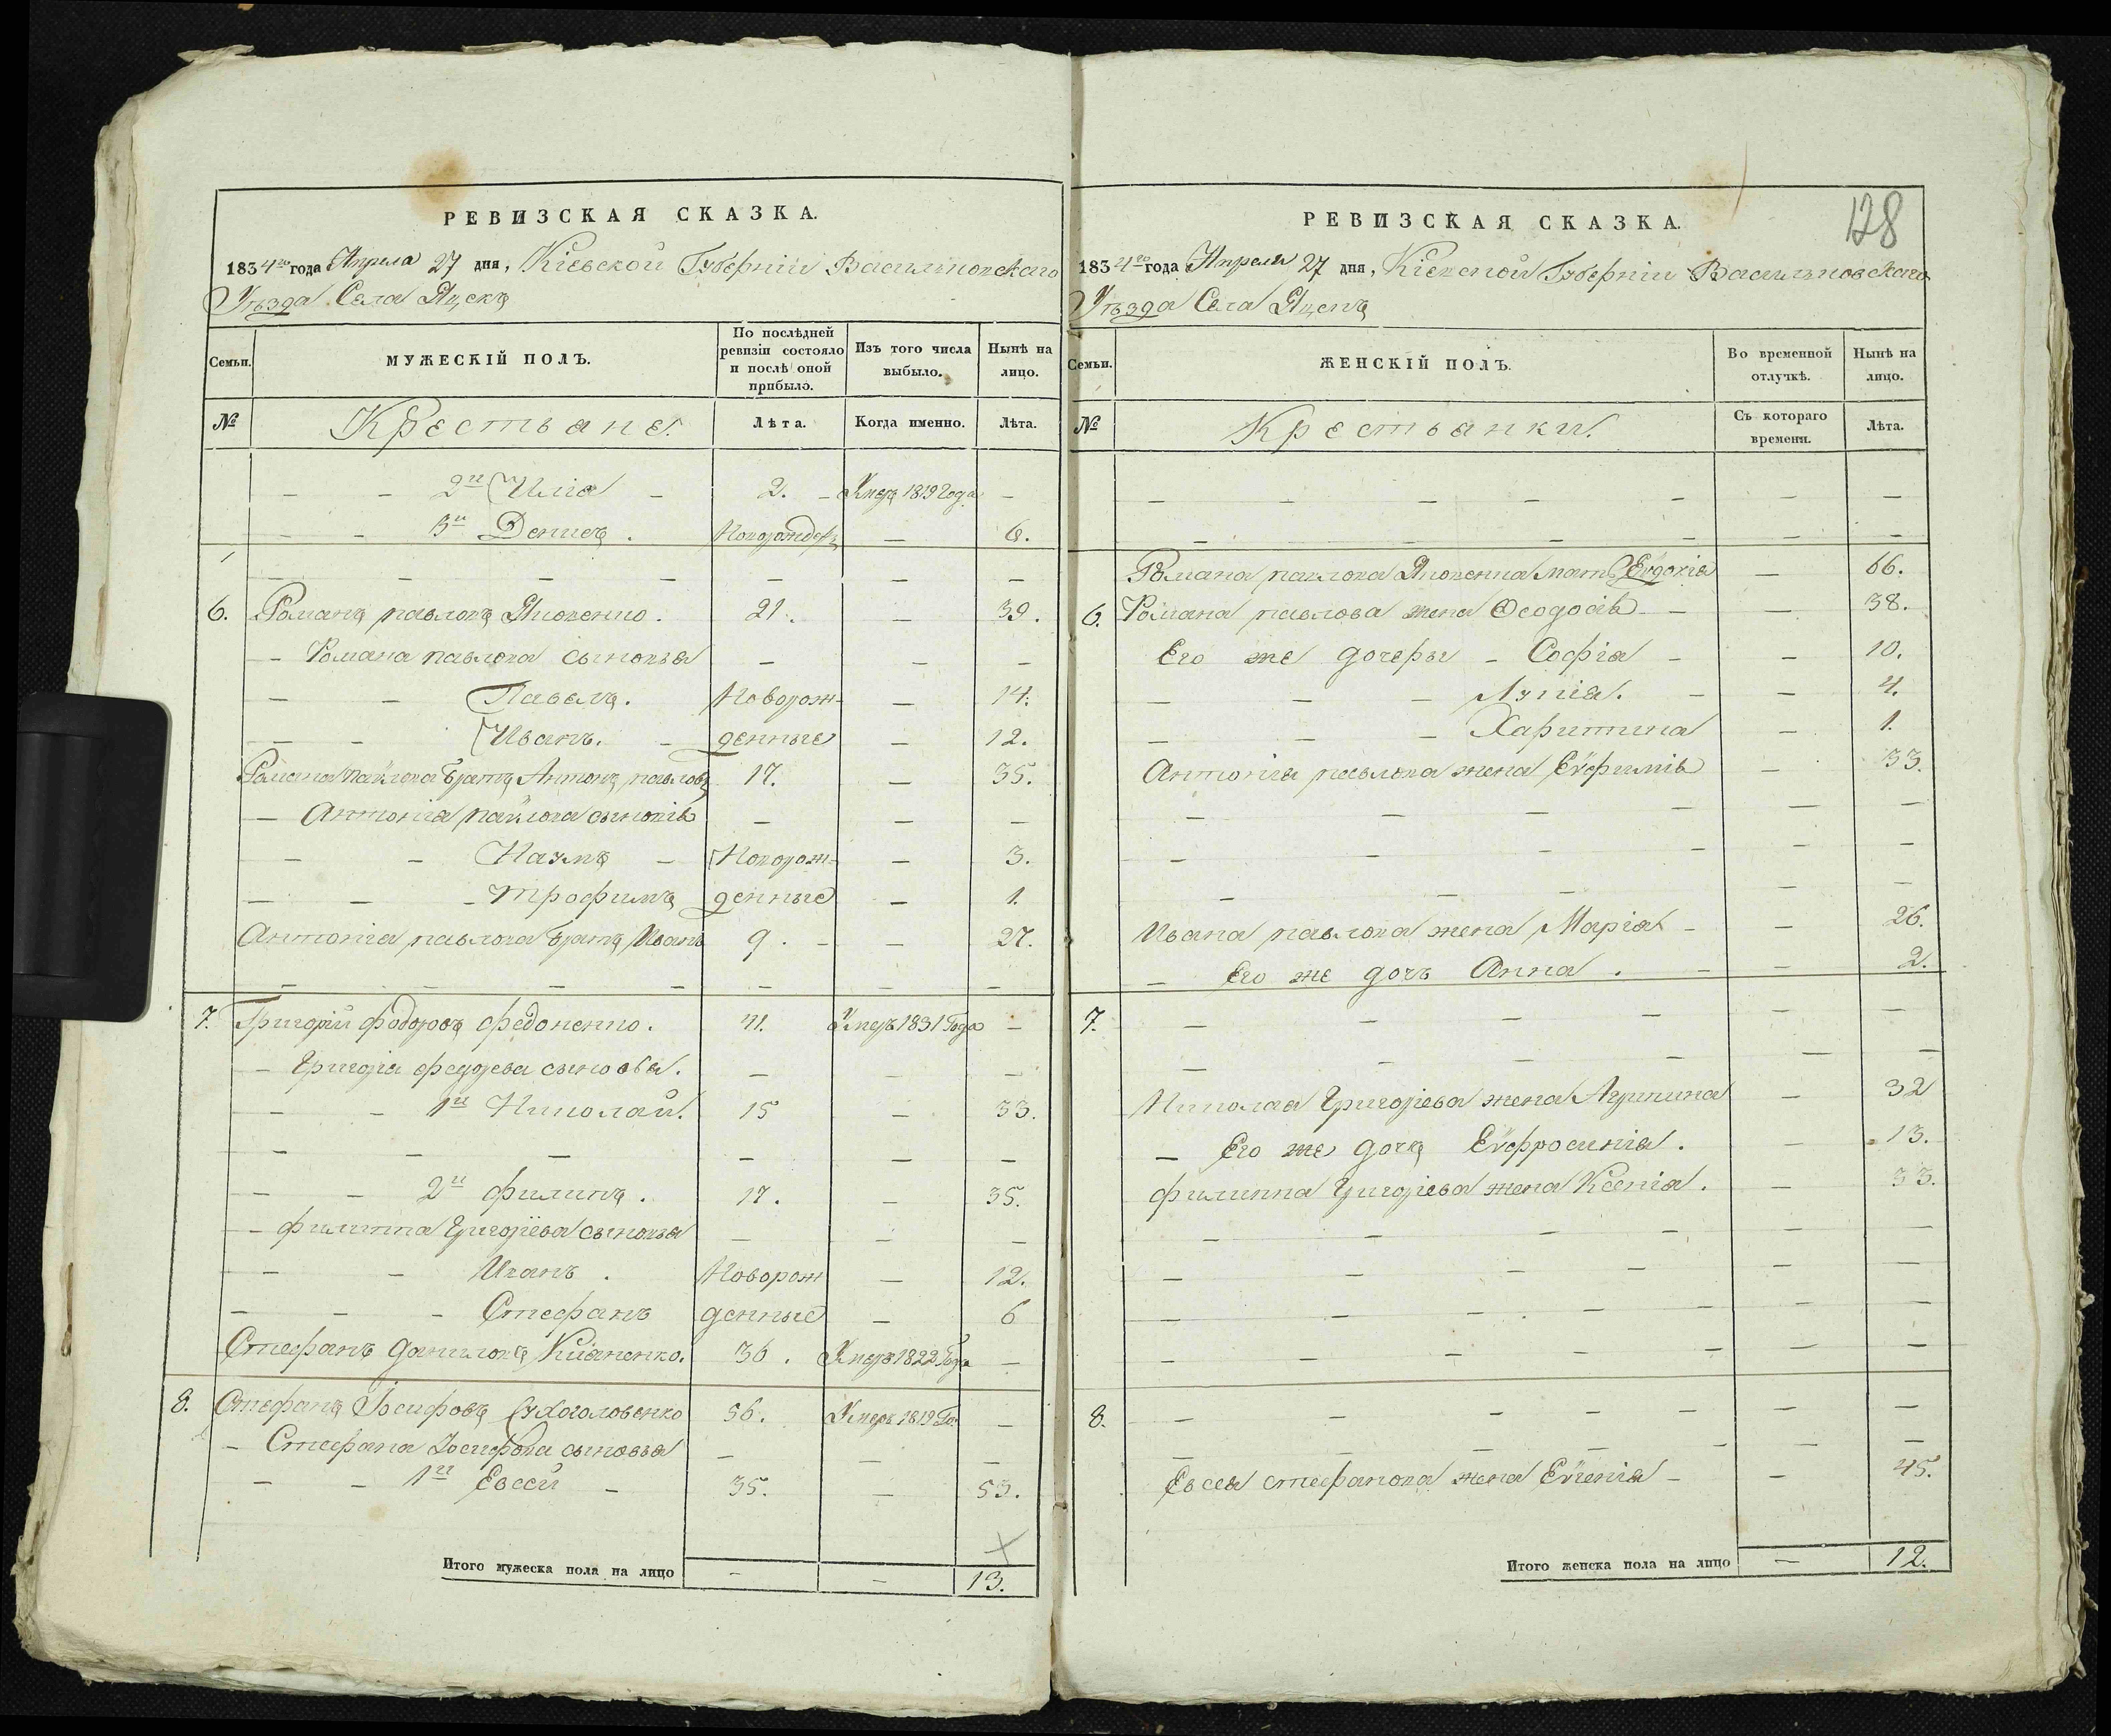 РЕВИЗСКАЯ СКАЗКА.
1834го года Апреля 27 дня, Кіевской Губерніи Васильковскаго
Уѣзда Села Яцекъ
Семьи.
МУЖЕСКІЙ ПОЛЪ.
По послѣдней ревизіи состояло и послѣ оной прибыло.
Изъ того числа выбыло.
Нынѣ на лицо.
№
Крестьяне.
Лѣта.
Когда именно.
Лѣта.
— — 2й Илія — 2. — Умеръ 1819 Года —
— — 3й Денисъ. Новорожденъ — 6.
— — — — — — —
6. Романъ павловъ 21. — 39.
— Романа павлова сыновья — — —
— — Павелъ. Новорож- — 14.
— — Иванъ. — денные — 12.
Романа павлова братъ Антонъ павловъ 17. — 35.
— Антонія павлова сыновья — — —
— — Наумъ — Новорож- — 3.
— — — Трофимъ денные — 1.
Антонія павлова братъ Иванъ 9. — — 27.
— — — — — — — —
7. Григорій федоровъ федоненко. 41. Умеръ 1831 Года —
— Григорія федорова сыновья. — — —
— — 1й Николай. 15 — 33.
— — — — — —
— — 2й филипъ. 17. — 35.
— филиппа Григоріева сыновья — — —
— — Иванъ. Новорож — 12.
— — — Стефанъ денные — 6
Стефанъ даниловъ 36. Умеръ 1822 Года —
8. Стефанъ Іосифовъ Сухоголовенко 56. Умеръ 1819 Го. —
— Стефана Іосифова сыновья — — —
— — 1й Евсей — 35. — 53.
Итого мужеска пола на лицо — — 13.
128
РЕВИЗСКАЯ СКАЗКА.
1834го года Апреля 27 дня, Кіевской Губерніи Васильковскаго
Уѣзда Села Яцекъ
Семьи.
ЖЕНСКІЙ ПОЛЪ.
Во временной отлучкѣ.
Нынѣ на лицо.
№
Крестьянки.
Съ котораго времени.
Лѣта.
— — — — — — —
— — — — — — —
Романа павлова мать Евдокія — 66.
6. Романа павлова жена Феодосія — — 38.
Его же дочеры — Софія — — 10.
— — — Лукія. — — 4.
— — — Харитина — 1.
Антонія павлова жена Евфимія — 33.
— — — — — —
— — — — — —
— — — — —
Ивана павлова жена Марія — — 26.
— Его же дочь Анна. — — 2.
7. — — — — — —
— — — — — —
Николая Григоріева жена Агрипина — 32
— Его же дочъ Евфросинія. — 13.
филиппа Григоріева жена Ксенія. — 33.
— — — — — —
— — — — — —
— — — — — —
— — — — — —
8. — — — — — — —
— — — — — — —
Евсея стефанова жена Евгенія — — 45.
Итого женска пола на лицо — 12.